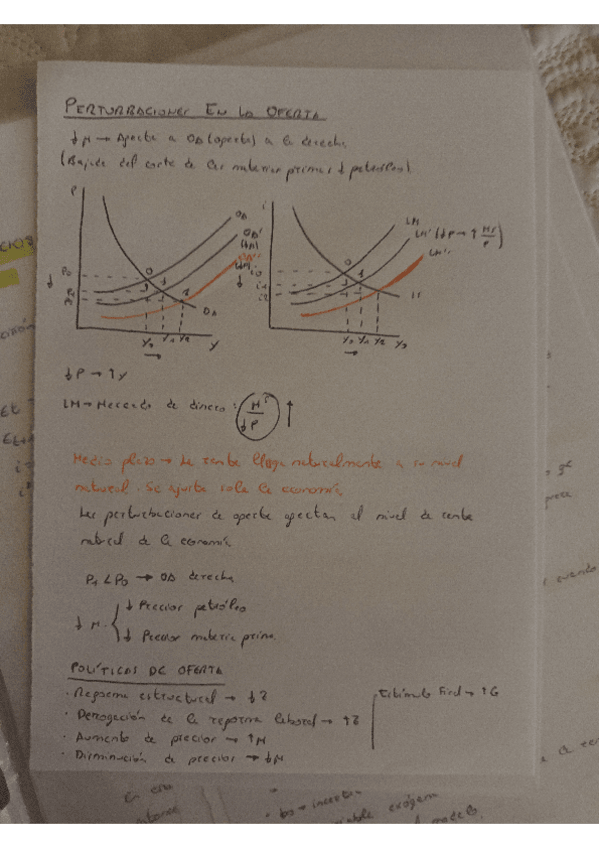 PERTURBACIONES EN LA OFERTA
↓M → Afecta a OA (oferta) a la derecha
(Bajada del coste de las materias primas ↓ petróleo).
P
OA
OA'
(↓M)
OA''
P0
0
1
2
OA
Y0 Y1 Y2
Y
i
LM
LM' (↓P → ↑ Ms/P)
LM''
i0
i1
i2
0
1
IS
Y0 Y1 Y2
↓P → ↑Y
LM → Mercado de dinero: Ms/↓P ↑
Medio plazo → La renta llega naturalmente a su nivel
natural. Se ajusta sola la economía
Las perturbaciones de oferta afectan al nivel de renta
natural de la economía
P1 < P0 → OA derecha
↓M
↓ Precios petróleo
↓ Precios materia prima
POLÍTICAS DE OFERTA
· Reforma estructural → ↓Z
· Derogación de la reforma laboral → ↑Z
· Aumento de precios → ↑M
· Disminución de precios → ↓M
Estímulo Fiscal → ↑G
cuando
En